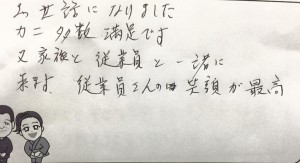 お世話になりました
カニ多数満足です
又家族と従業員と一緒に
来ます 従業員さんの笑顔が最高